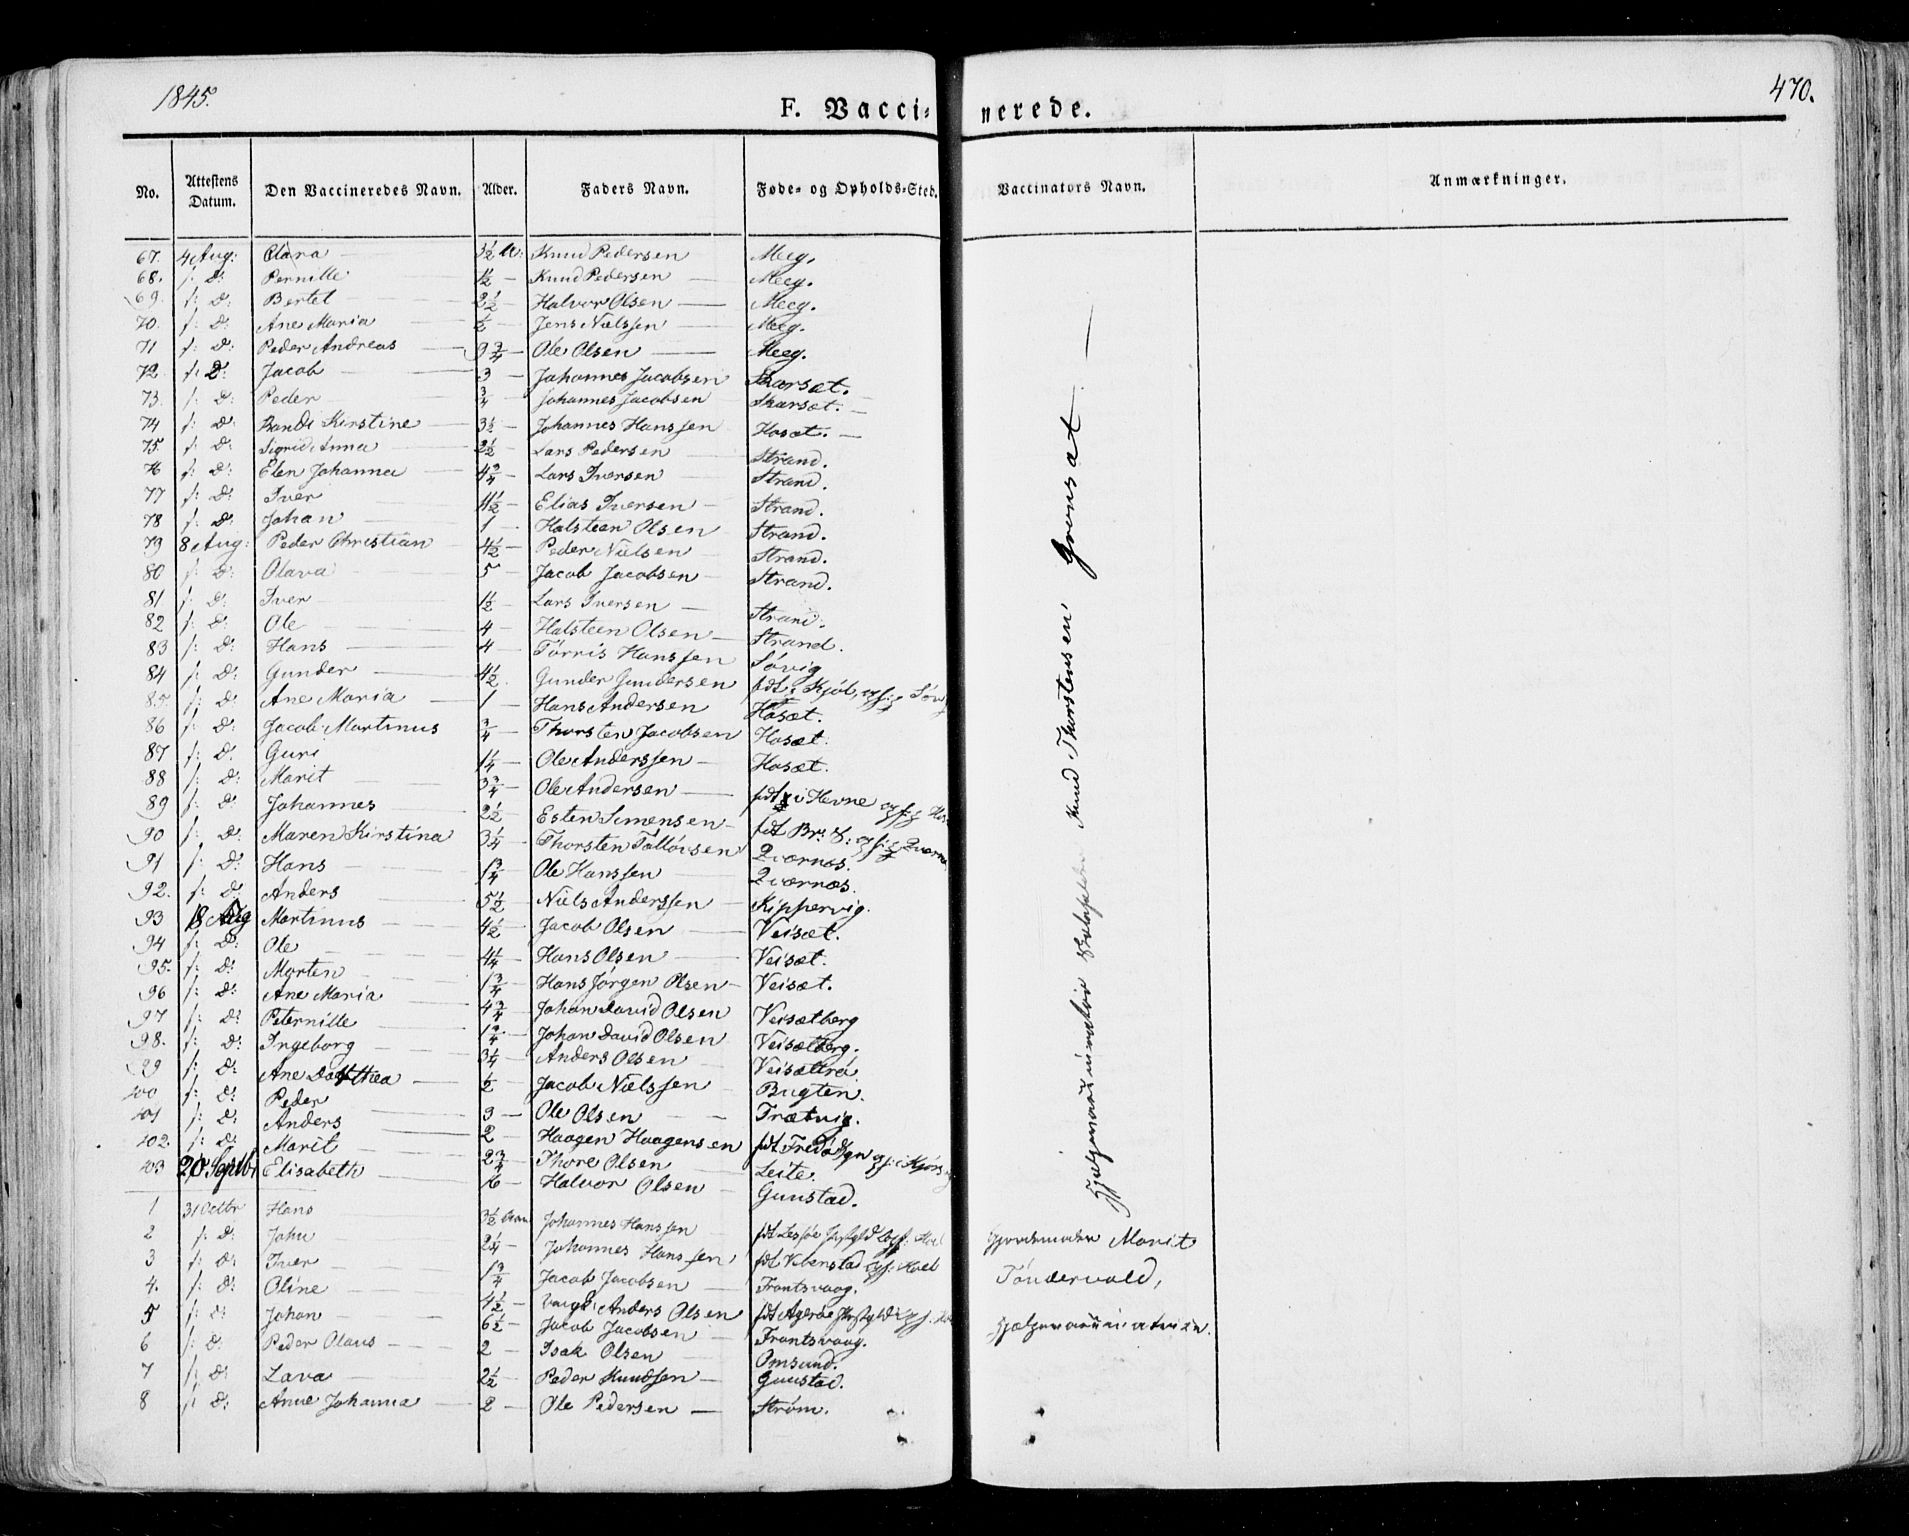 1845.
470.
F. Vaccinerede.
No. Attestens Datum. Den Vaccineredes Navn. Alder. Faders Navn. Føde- og Opholds-Sted. Vaccinators Navn. Anmærkninger.
67. 4 Aug: Clara 3 1/2 Knud Pedersen Meeg.
68. f: D: Pernille 1/2 Knud Pedersen Meeg.
69. f: D: Bertel 2 1/2 Halvor Olsen Meeg.
70. f: D: Ane Maria 1/2 Jens Nielssen Meeg.
71 f: D: Peder Andreas 9 3/4 Ole Olsen Meeg.
72. f: D: Jacob 3 Johannes Jacobsen Skarsæt.
73. f: D: Peder 3/4 Johannes Jacobsen Skarsæt.
74 f: D: Randi Kirstine 3 1/2 Johannes Hanssen Hosæt.
75. f: D: Sigrid Anna 2 1/2 Lars Pedersen Strand.
76 f: D: Elen Johanna 4 3/4 Lars Iversen Strand.
77 f: D: Iver 4 1/2 Elias Iversen Strand.
78 f: D: Johan 1 Halsteen Olsen Strand.
79 8 Aug: Peder Christian 4 1/2 Peder Nielsen Strand.
80 f: D: Olava 5 Jacob Jacobsen Strand.
81 f: D: Iver 1 1/2 Lars Iversen Strand.
82 f: D: Ole 4 Halsteen Olsen Strand.
83 f: D: Hans 4 Tørris Hanssen Søvig
84 f: D: Gunder 4 1/2 Gunder Gundersen fdt i Kjøl,
85. f: D: Ane Maria 1 Hans Andersen Hosæt.
86 f: D: Jacob Martinus 3/4 Thorsten Jacobsen Hosæt.
87 f: D: Guri 1 1/4 Ole Anderssen Hosæt.
88 f: D: Marit 3 3/4 Ole Andersen fdt i Hevne
89 f: D: Johannes 2 1/2 Esten Simensen fdt Br: S:
90 f: D: Maren Kirstina 3 1/4 Thorsten Tolløvsen Qværnæs.
91 f: D: Hans 1 3/4 Ole Hanssen Qværnæs.
92. f: D: Anders 5 1/2 Niels Anderssen Kippervig.
93 18 Aug Martinus 4 1/2 Jacob Olsen Veisæt.
94 f: D: Ole 4 1/4 Hans Olsen Veisæt.
95. f: D: Morten 1 3/4 Hans Jørgen Olsen Veisæt.
96 f: D: Ane Maria 4 3/4 Johan David Olsen Veisætberg
97 f: D: Peternille 1 3/4 Johan David Olsen Veisætberg.
98. f: D: Ingeborg 3 1/4 Anders Olsen Veisættrø
99 f: D: Ane Dorthea 1/2 Jacob Nielssen Bugten.
100 f: D: Peder 3 Ole Olsen Trætvig.
101 f: D: Anders 2 Haagen Haagensen
102. f: D: Marit 2 3/4 Thore Olsen Leite.
103 20 Septbr Elisabeth Halvor Olsen Gunstad.
Hjelpevaccinatør Knud Thorstensen Gronsæt
1 31 Octbr Hans 3 1/2 Aar Johannes Hanssen
2 f: D: John 2 1/4 Johannes Hanssen
3 f: D: Iver 1 3/4 Jacob Jacobsen Frantsvaag.
4. f: D: Oline 4 1/2 Anders Olsen
5 f: D: Johan 6 1/2 Jacob Jacobsen Frantsvaag.
6 f: D: Peder Olaus 2 Isak Olsen Omsund.
7 f: D: Lava 2 1/2 Peder Knudsen Gunstad.
8 f: D: Anne Johanna 2 Ole Pedersen Strøm.
Gjordemoder Marit
Tøndervold,
Hjælpevaccinatør.